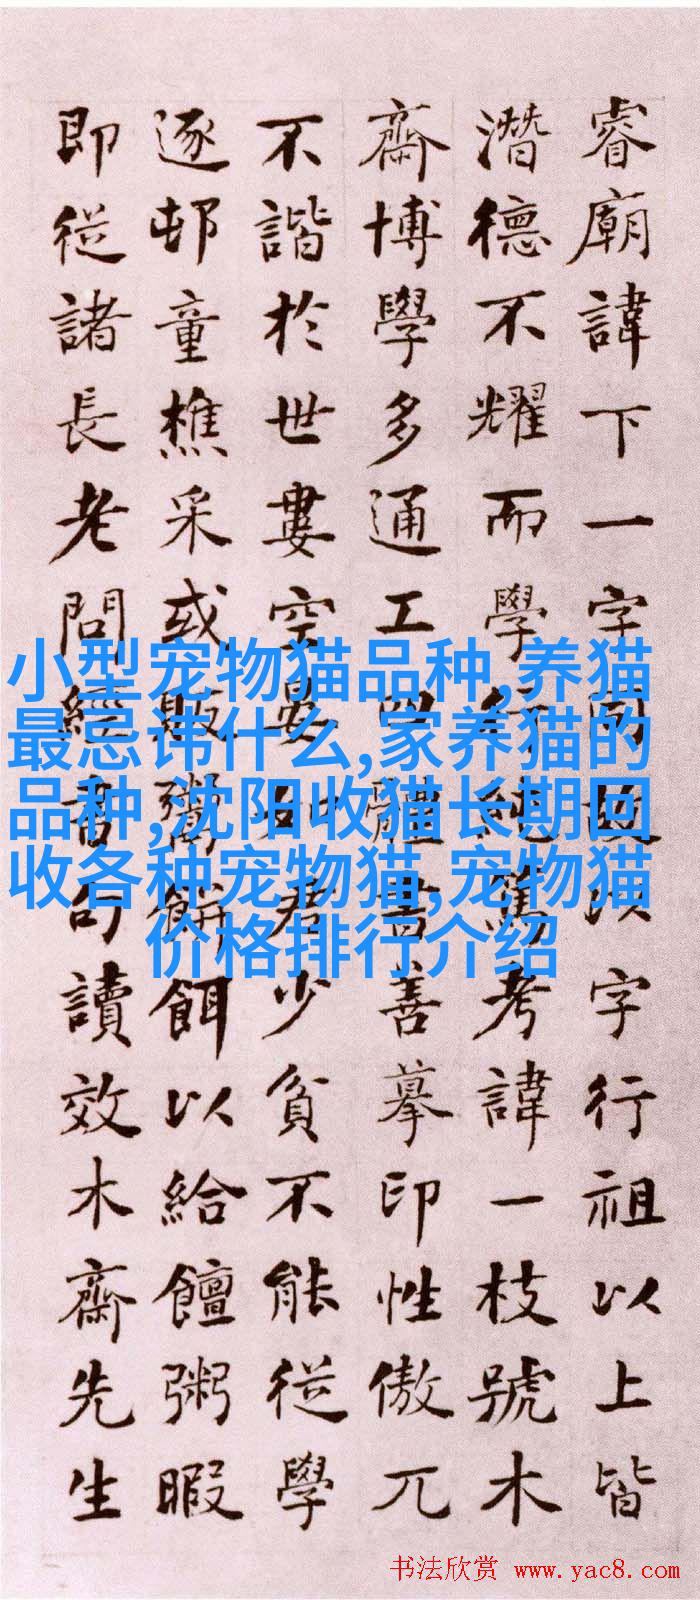 睿廟諱下一字同字行祖以上皆
潛德不耀而學行純篤考諱一枝號木
齋博學多通工四體書善摹印性傲兀
不諧於世婁空晏如君少貧不能從學
逐邨童樵采或販鬻餅餌以給饘粥暇
即從諸長老問經書句讀效木齋先生
小型宠物猫品种,养猫
最忌讳什么,家养猫的
品种,沈阳收猫长期回
收各种宠物猫,宠物猫
价格排行介绍
书法欣赏 www.yac8.com